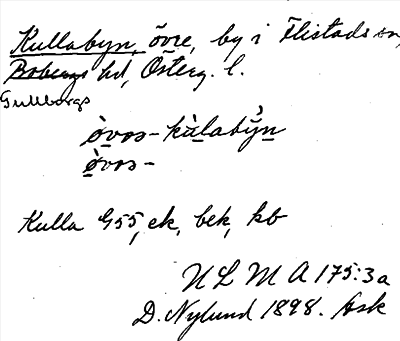 Kullabyn, övre, by i Flistads sn,
Bobergs hd, Österg. l.
Gullbergs
òvos-kùlabýn
òvos-
Kulla G55, ek, bek, kb
ULMA 175:3a
D. Nylund 1898. Ask